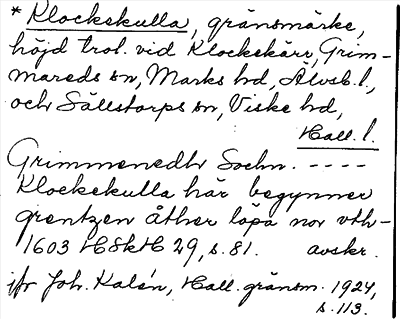 * Klockekulla, gränsmärke,
höjd trol. vid Klockekärr, Grim-
mareds sn, Marks hd, Älvsb. l.,
och Sällstorps sn, Viske hd,
Hall. l.
Grimmenedhr Sochn. ----
Klockekulla här begynner
grentzen åther löpa nor vth-
1603 HSkH 29, s. 81. avskr.
jfr Joh. Kalén, Hall. gränsm. 1924,
s. 113.